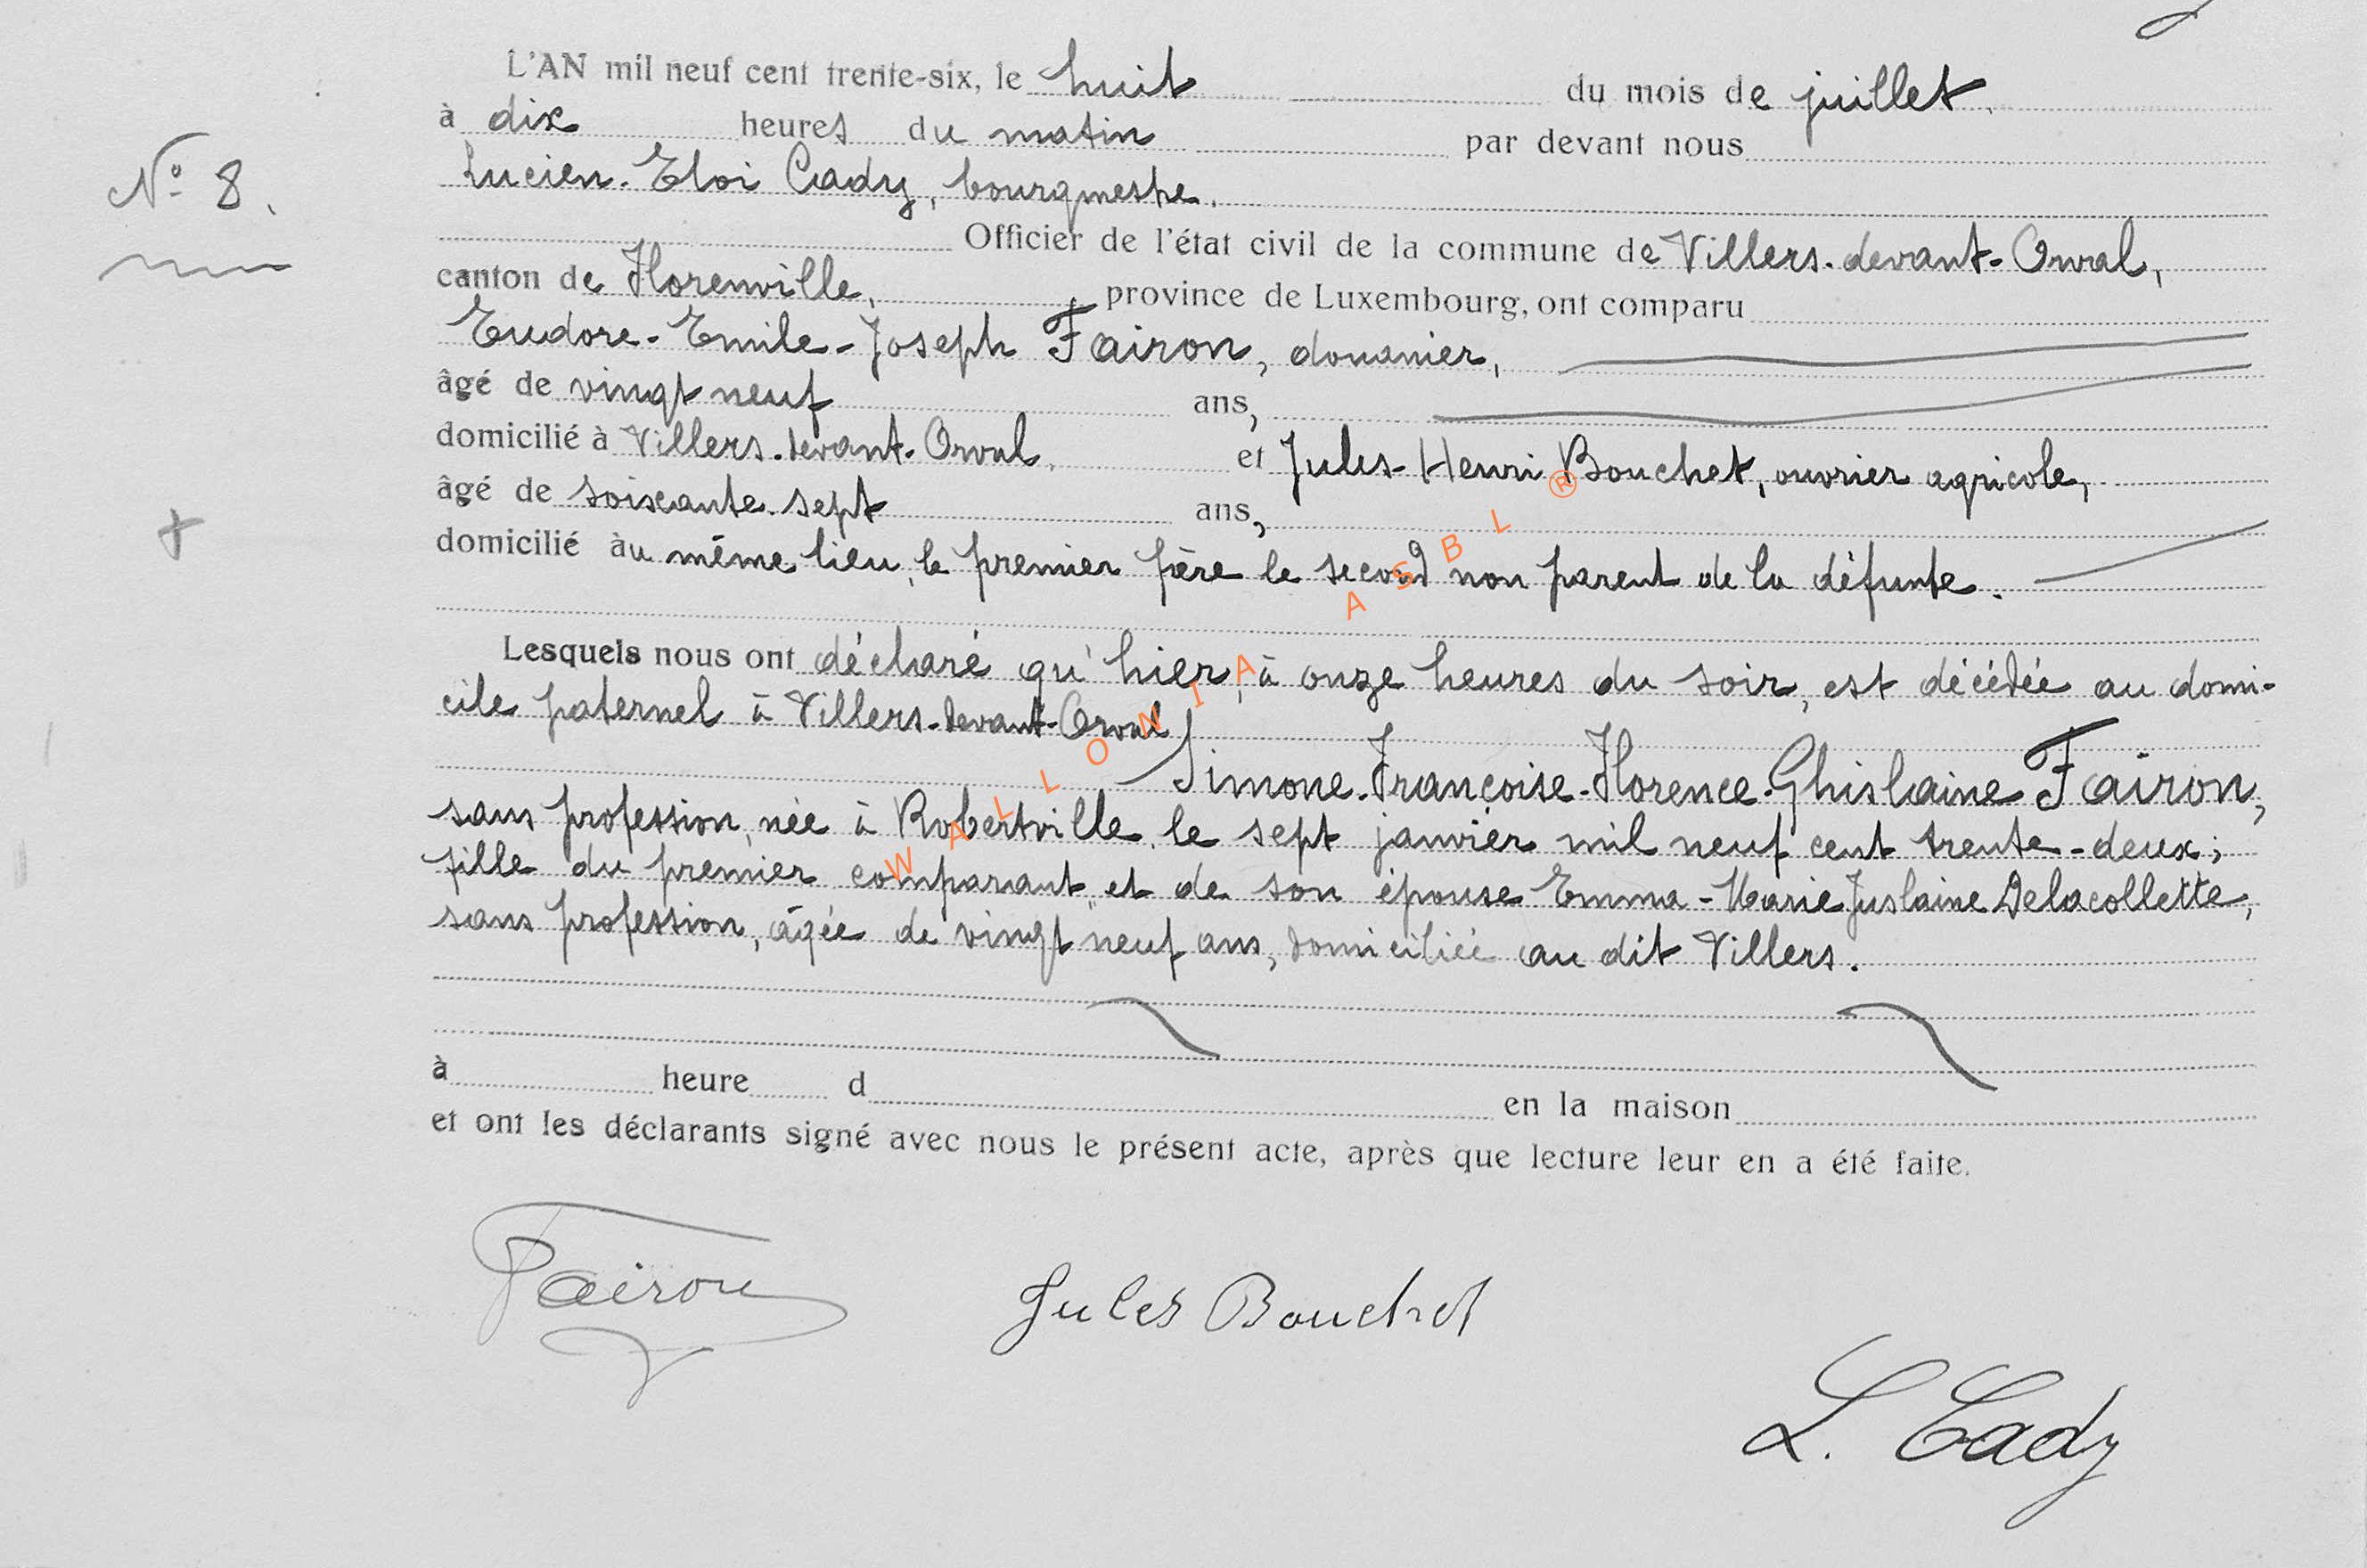 L'AN mil neuf cent trente-six, le huit du mois de juillet,
à dix heures du matin par devant nous
N° 8.
Lucien-Eloi Cady, bourgmestre.
Officier de l'état civil de la commune de Villers-devant-Orval,
canton de Florenville, province de Luxembourg, ont comparu
Eudore-Emile-Joseph Fairon, douanier,
âgé de vingt neuf ans,
domicilié à Villers-devant-Orval, et Jules-Henri Bouchet, ouvrier agricole,
âgé de soixante-sept ans,
domicilié au même lieu, le premier père le second non parent de la défunte.
Lesquels nous ont déclaré qu'hier, à onze heures du soir, est décédée au domi-
cile paternel à Villers-devant-Orval
Simone-Françoise-Florence-Ghislaine Fairon,
sans profession, née à Robertville, le sept janvier mil neuf cent trente-deux;
fille du premier comparant et de son épouse Emma-Marie Juslaine Delacollette,
sans profession, âgée de vingt neuf ans, domiciliée au dit Villers.
à heure d en la maison
et ont les déclarants signé avec nous le présent acte, après que lecture leur en a été faite.
Fairon Jules Bouchet
L. Cady
WALLONIA ASBL ®